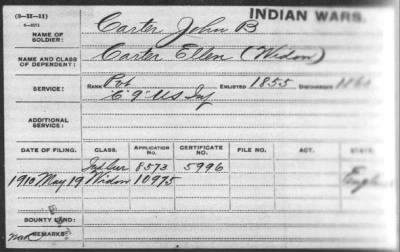 (3—II—11)
INDIAN WARS.
NAME OF SOLDIER: Carter John B
NAME AND CLASS OF DEPENDENT: Carter Ellen (Widow)
SERVICE: RANK Pvt ENLISTED 1855 DISCHARGED 1860
"E" 9" US Inf
ADDITIONAL SERVICE:
DATE OF FILING. CLASS. APPLICATION NO. CERTIFICATE NO. FILE NO. ACT. STATE.
Sur 8573 5996
1910 May 19 Widow 10975
BOUNTY LAND:
REMARKS: